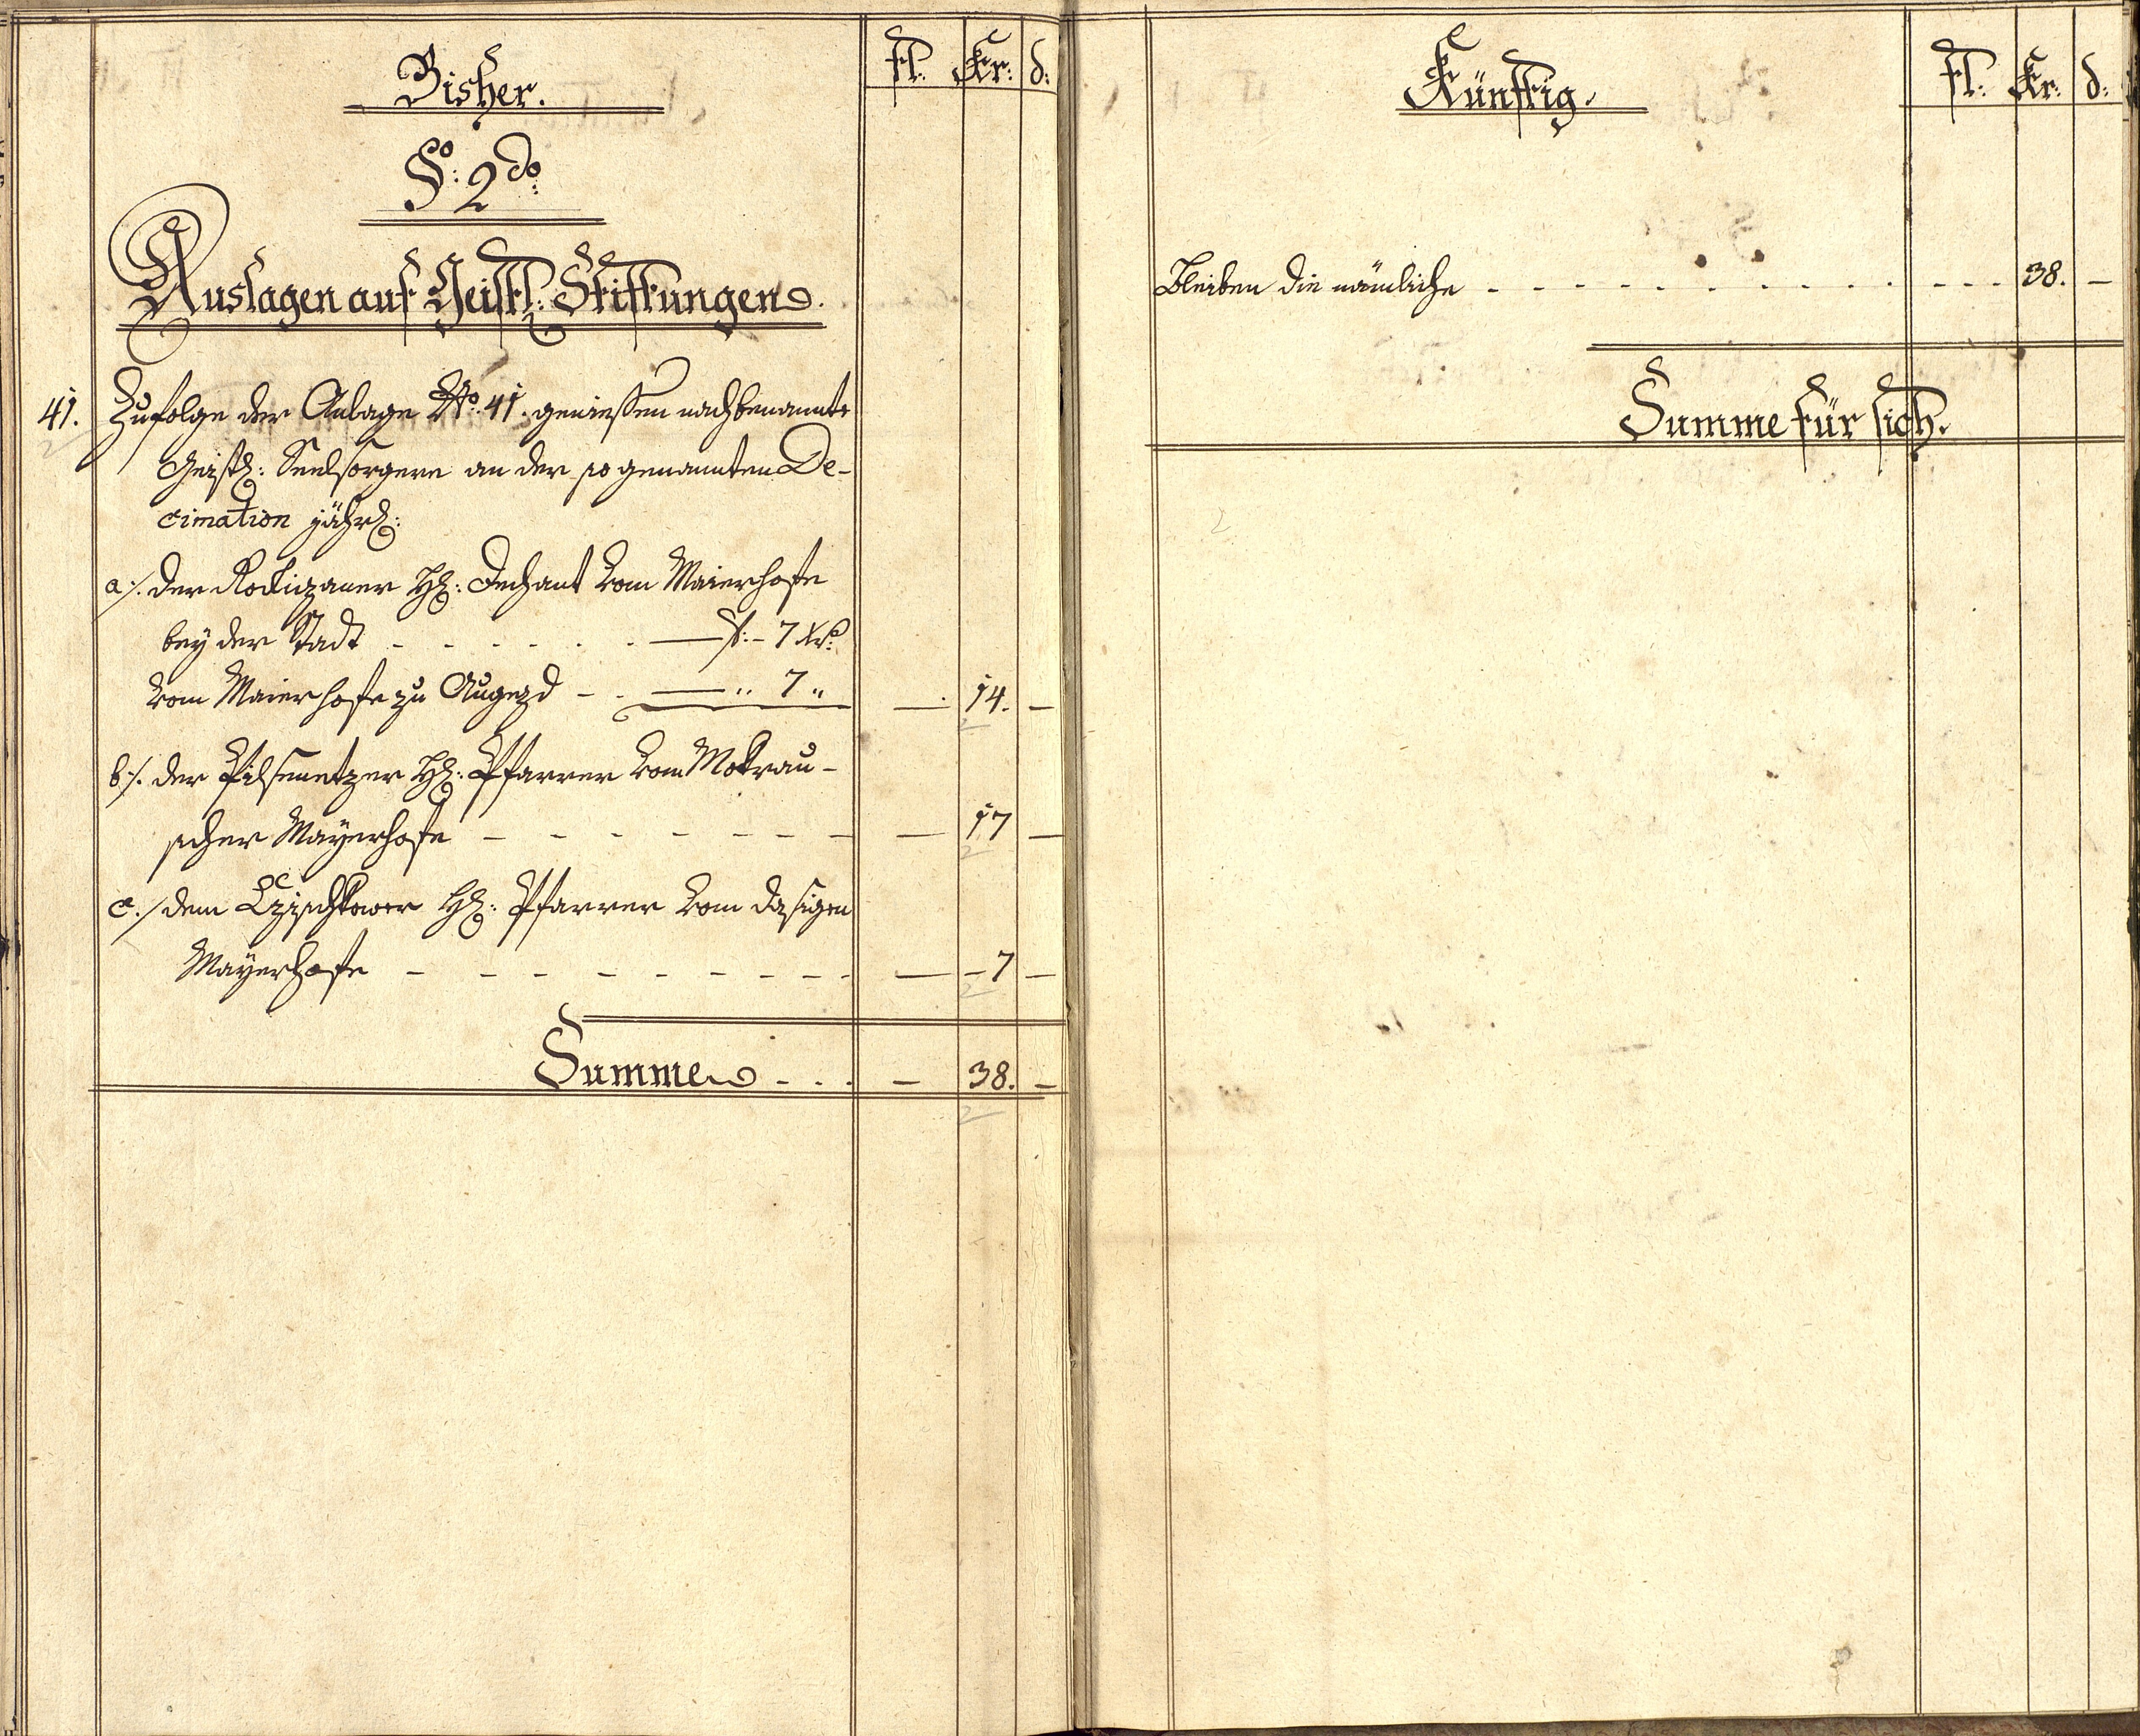 Bisher.
fl. Kr: d:
§o: 2do:
Auslagen auf Geistl: Stiftungen.
41. Zufolge der Anlage No. 41. geniessen nachbenannte
Geistl: Seelsorgere an der so genannten De-
cimation jährl:
a/. der Rockizaner H: Dechant vom Maierhofe
bey der Stadt - - - - - - — f: - 7 Xr:
vom Maierhofe zu Augezd - - — „ 7 „ — 14. —
b/. der Pilsenetzer H: Pfarrer vom Mokrau-
scher Mayerhofe - - - - - - - — 17 —
c./ dem Pfarrer vom dasigen
Mayerhofe - - - - - - - - — - 7 —
Summe - . . - 38. -
Künftig.
fl: Kr: d:
Bleiben die nämliche - - - - - - - - - - . . . 38. -
Summe für sich.